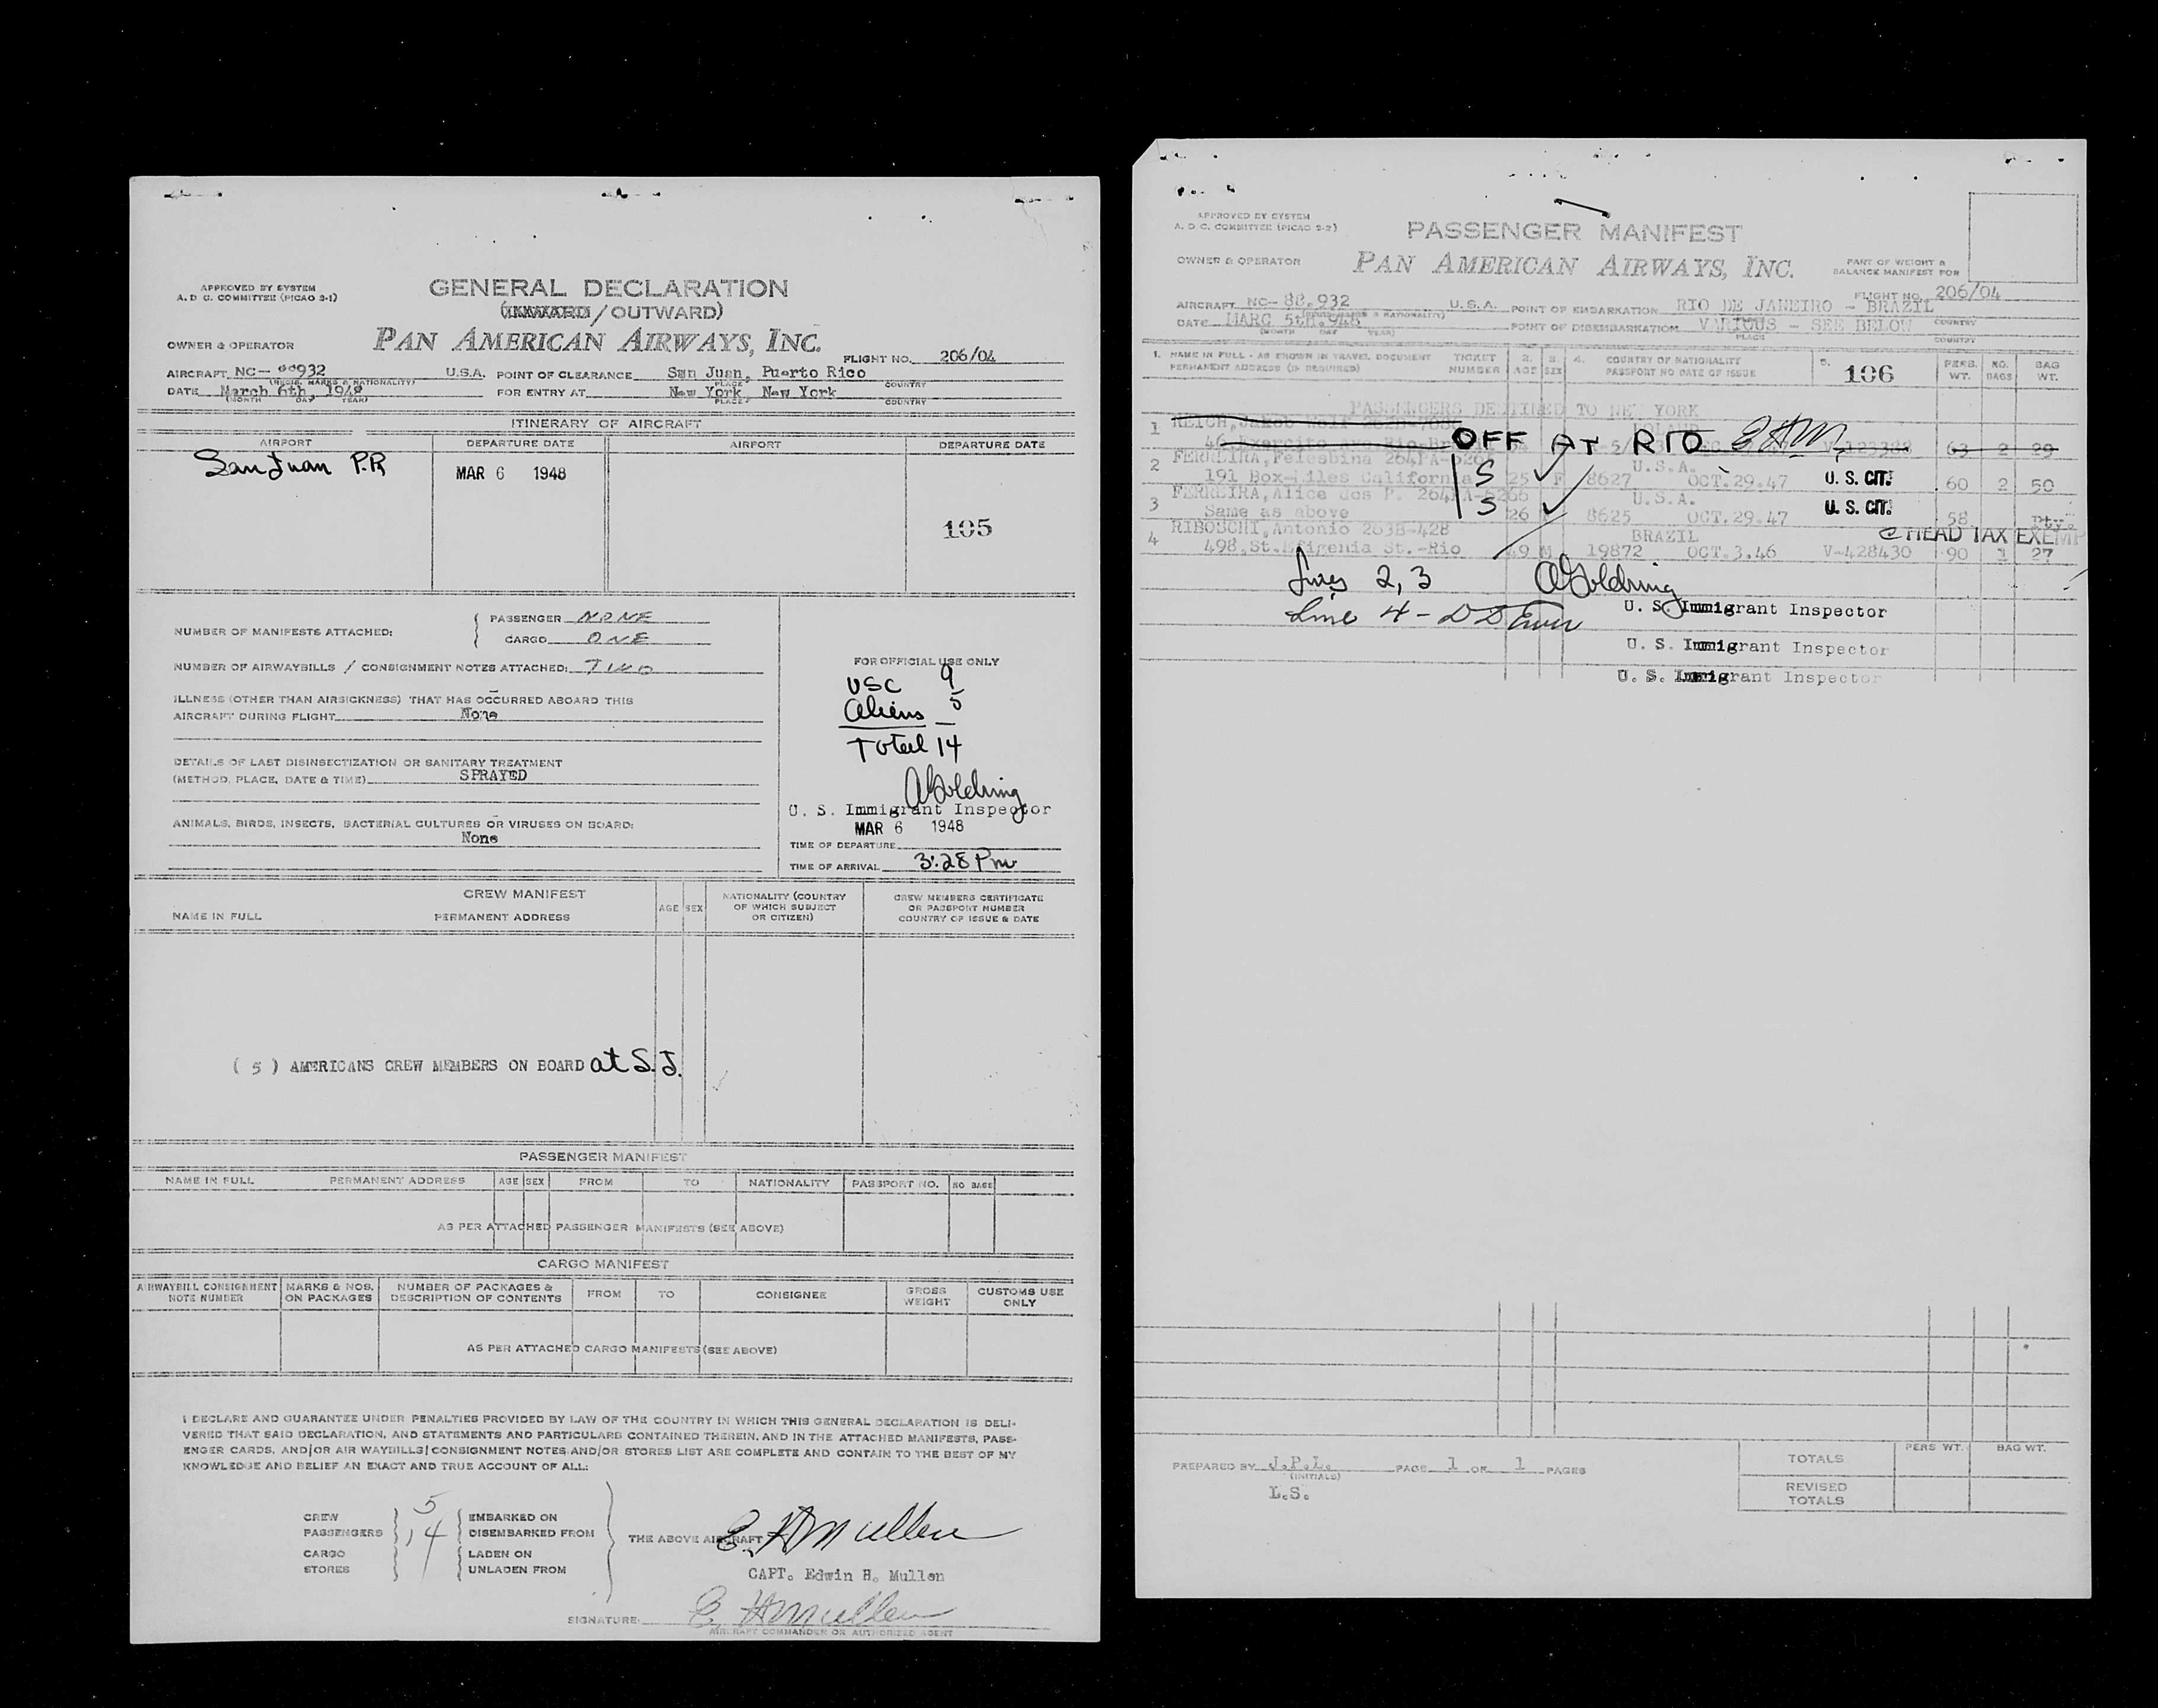 APPROVED BY SYSTEM
A. D. C. COMMITTEE (PICAO 2-1)
GENERAL DECLARATION
(INWARD / OUTWARD)
PAN AMERICAN AIRWAYS, INC.
OWNER & OPERATOR
FLIGHT NO. 206/04
AIRCRAFT NC- 932 U.S.A. POINT OF CLEARANCE San Juan, Puerto Rico
(REGIS. MARKS & NATIONALITY) PLACE COUNTRY
DATE March 6th, 1948 FOR ENTRY AT New York, New York
(MONTH DAY YEAR) PLACE COUNTRY
ITINERARY OF AIRCRAFT
AIRPORT DEPARTURE DATE AIRPORT DEPARTURE DATE
San Juan P.R MAR 6 1948
105
NUMBER OF MANIFESTS ATTACHED: PASSENGER NONE
CARGO ONE
NUMBER OF AIRWAYBILLS / CONSIGNMENT NOTES ATTACHED: TWO
ILLNESS (OTHER THAN AIRSICKNESS) THAT HAS OCCURRED ABOARD THIS
AIRCRAFT DURING FLIGHT None
DETAILS OF LAST DISINSECTIZATION OR SANITARY TREATMENT
(METHOD, PLACE, DATE & TIME) SPRAYED
ANIMALS, BIRDS, INSECTS, BACTERIAL CULTURES OR VIRUSES ON BOARD:
None
FOR OFFICIAL USE ONLY
USC 9
Aliens 5
Total 14
AGoldring
U. S. Immigrant Inspector
MAR 6 1948
TIME OF DEPARTURE
TIME OF ARRIVAL 3:28 Pm
CREW MANIFEST
NAME IN FULL PERMANENT ADDRESS AGE SEX NATIONALITY (COUNTRY OF WHICH SUBJECT OR CITIZEN) CREW MEMBERS CERTIFICATE OR PASSPORT NUMBER COUNTRY OF ISSUE & DATE
( 5 ) AMERICANS CREW MEMBERS ON BOARD at S.J.
PASSENGER MANIFEST
NAME IN FULL PERMANENT ADDRESS AGE SEX FROM TO NATIONALITY PASSPORT NO. NO BAGS
AS PER ATTACHED PASSENGER MANIFESTS (SEE ABOVE)
CARGO MANIFEST
AIRWAYBILL CONSIGNMENT NOTE NUMBER MARKS & NOS. ON PACKAGES NUMBER OF PACKAGES & DESCRIPTION OF CONTENTS FROM TO CONSIGNEE GROSS WEIGHT CUSTOMS USE ONLY
AS PER ATTACHED CARGO MANIFESTS (SEE ABOVE)
I DECLARE AND GUARANTEE UNDER PENALTIES PROVIDED BY LAW OF THE COUNTRY IN WHICH THIS GENERAL DECLARATION IS DELI-
VERED THAT SAID DECLARATION, AND STATEMENTS AND PARTICULARS CONTAINED THEREIN, AND IN THE ATTACHED MANIFESTS, PASS-
ENGER CARDS, AND/OR AIR WAYBILLS/CONSIGNMENT NOTES AND/OR STORES LIST ARE COMPLETE AND CONTAIN TO THE BEST OF MY
KNOWLEDGE AND BELIEF AN EXACT AND TRUE ACCOUNT OF ALL:
CREW 5 EMBARKED ON
PASSENGERS 14 DISEMBARKED FROM
THE ABOVE AIRCRAFT E. H Mullen
CARGO LADEN ON
STORES UNLADEN FROM
CAPT. Edwin H. Mullen
SIGNATURE: E. H Mullen
AIRCRAFT COMMANDER OR AUTHORIZED AGENT
APPROVED BY SYSTEM
A. D. C. COMMITTEE (PICAO 2-2)
PASSENGER MANIFEST
OWNER & OPERATOR PAN AMERICAN AIRWAYS, INC.
PART OF WEIGHT & BALANCE MANIFEST FOR
FLIGHT NO. 206/04
AIRCRAFT NC- 88.932 U.S.A. POINT OF EMBARKATION RIO DE JANEIRO - BRAZIL
DATE MARC 5th.948 POINT OF DISEMBARKATION VARIOUS - SEE BELOW
(MONTH DAY YEAR) PLACE COUNTRY
1. NAME IN FULL - AS SHOWN IN TRAVEL DOCUMENT TICKET 2. 3. 4. COUNTRY OF NATIONALITY 5. PERS. NO. BAG
PERMANENT ADDRESS (IF REQUIRED) NUMBER AGE SEX PASSPORT NO DATE OF ISSUE 106 WT. BAGS WT.
PASSENGERS DESTINED TO NEW YORK
1 REICH,
OFF AT RIO EHM V-123388 63 2 29
2 FERREIRA, Felesbina 264PA-6267 U.S.A.
191 Box-Liles California 25 F 8627 OCT.29.47 U. S. CIT. 60 2 50
3 FERREIRA, Alice dos P. 264PA-6266 U.S.A.
Same as above 26 8625 OCT.29.47 U. S. CIT. 58 Pty.
4 RIBOSCHI, Antonio 263B-428 BRAZIL HEAD TAX EXEMP
498,St.Efigenia St.-Rio 49 M 19872 OCT.3.46 V-428430 90 1 27
S
S
Lines 2, 3 AGoldring
U. S. Immigrant Inspector
Line 4 -
U. S. Immigrant Inspector
U. S. Immigrant Inspector
PREPARED BY J.P.L. PAGE 1 OF 1 PAGES
(INITIALS)
L.S.
PERS WT. BAG WT.
TOTALS
REVISED TOTALS